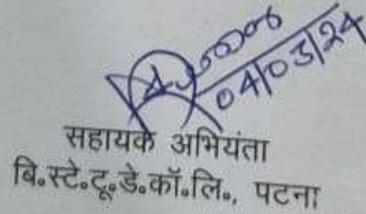 04/03/24
सहायक अभियंता
बि॰स्टे॰टू॰डे॰कॉ॰लि॰, पटना